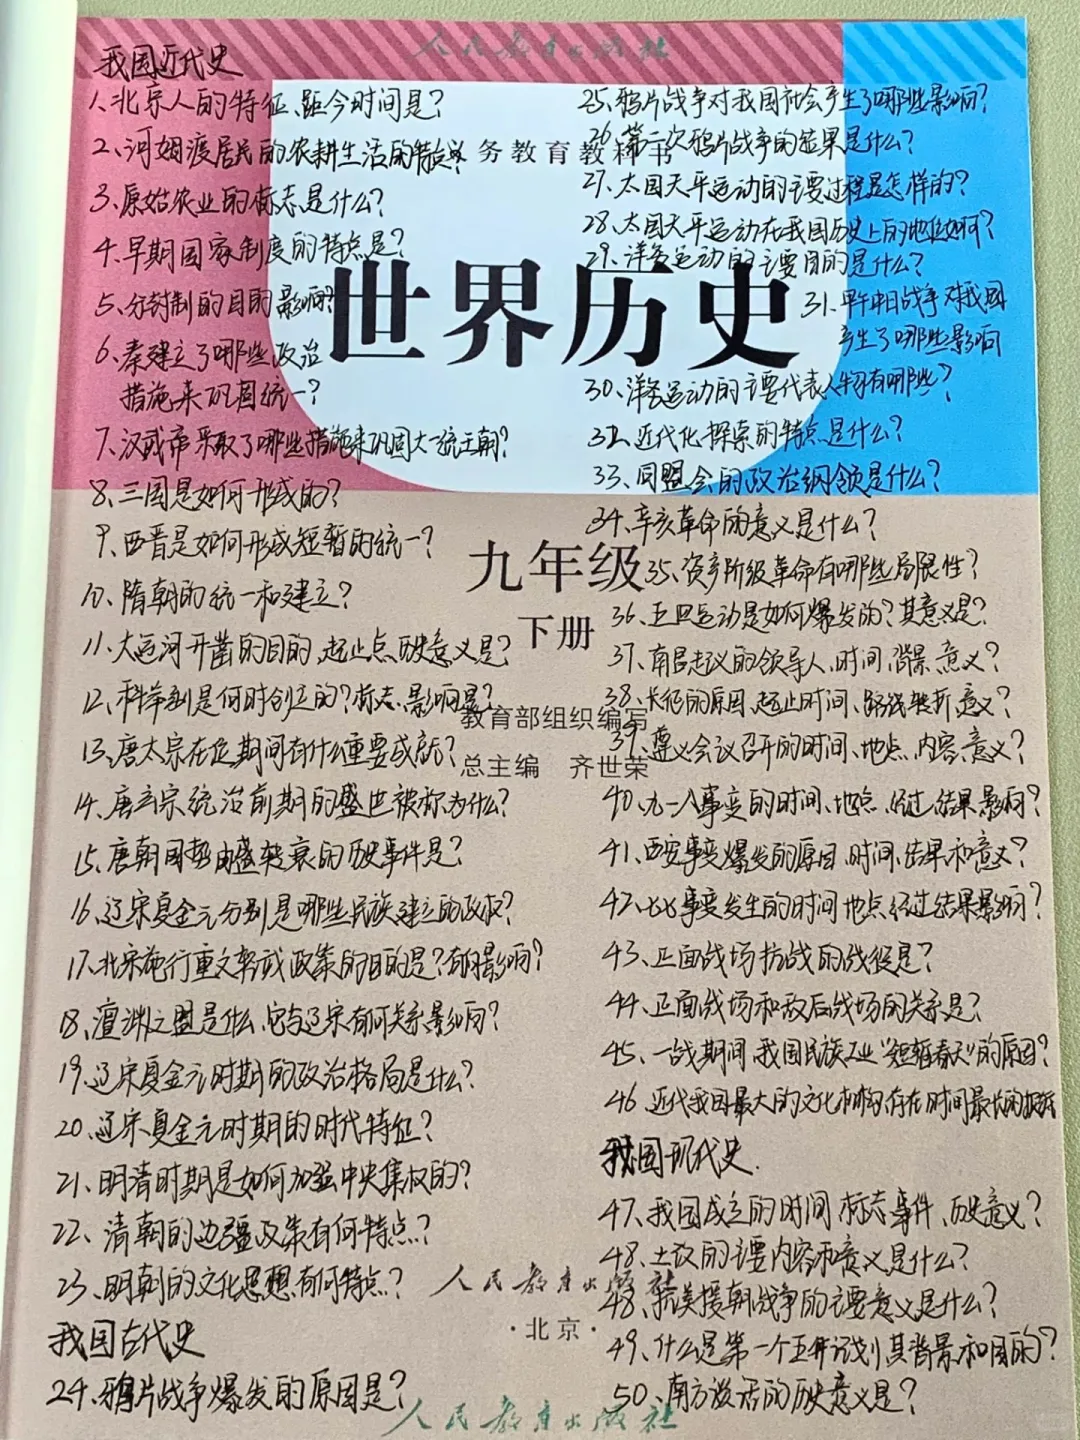 人民教育出版社
我国近代史
1、北京人的特征、距今时间是?
2、河姆渡居民的农耕生活的特点
3、原始农业的标志是什么?
4、早期国家制度的特点是?
5、分封制的目的影响?
6、秦建立了哪些政治
措施来巩固统一?
7、汉武帝采取了哪些措施来巩固大一统王朝?
8、三国是如何形成的?
9、西晋是如何形成短暂的统一?
10、隋朝的统一和建立?
11、大运河开凿的目的、起止点、历史意义是?
12、科举制是何时创立的?标志、影响是?
13、唐太宗在位期间有什么重要成就?
14、唐玄宗统治前期的盛世被称为什么?
15、唐朝国势由盛转衰的历史事件是?
16、辽宋夏金元分别是哪些民族建立的政权?
17、北宋施行重文轻武政策的目的是?有何影响?
18、澶渊之盟是什么,它与辽宋有何关系影响?
19、辽宋夏金元时期的政治格局是什么?
20、辽宋夏金元时期的时代特征?
21、明清时期是如何加强中央集权的?
22、清朝的边疆政策有何特点?
23、明朝的文化思想有何特点?
我国古代史
24、鸦片战争爆发的原因是?
25、鸦片战争对我国社会产生了哪些影响?
26、第二次鸦片战争的结果是什么?
务教育教科书
27、太国天平运动的主要过程是怎样的?
28、太国天平运动在我国历史上的地位如何?
29、洋务运动的主要目的是什么?
世界历史
31、甲午中日战争对我国
产生了哪些影响
30、洋务运动的主要代表人物有哪些?
32、近代化探索的特点是什么?
33、同盟会的政治纲领是什么?
34、辛亥革命的意义是什么?
九年级
35、资产阶级革命有哪些局限性?
下册
36、五四运动是如何爆发的?其意义是?
37、南昌起议的领导人、时间、背景、意义?
38、长征的原因、起止时间、路线转折、意义?
教育部组织编写
39、遵义会议召开的时间、地点、内容、意义?
总主编 齐世荣
40、九一八事变的时间、地点、经过、结果、影响?
41、西安事变爆发的原因、时间、结果和意义?
42、七七事变发生的时间地点经过结果影响?
43、正面战场抗战的战役是?
44、正面战场和敌后战场的关系是?
45、一战期间,我国民族工业“短暂春天”的原因?
46、近代我国最大的文化机构,存在时间最长的报纸
我国现代史
47、我国成立的时间、标志事件、历史意义?
48、土改的主要内容和意义是什么?
人民教育出版社
48、抗美援朝战争的主要意义是什么?
·北京·
49、什么是第一个五年计划,其背景和目的?
50、南方谈话的历史意义是?
人民教育出版社